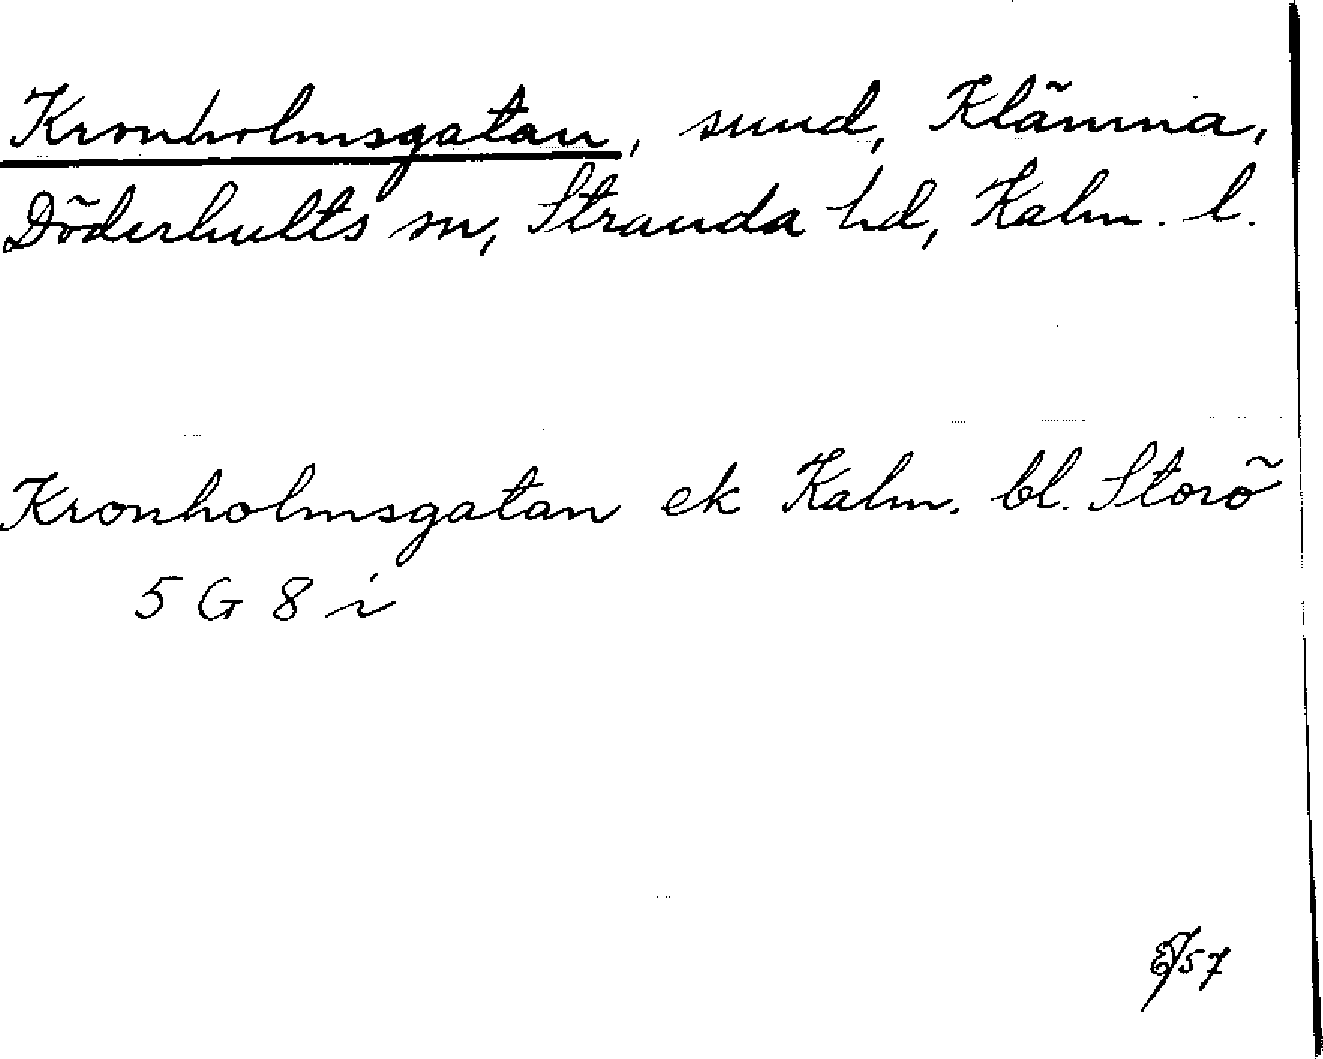 Kronholmsgatan, sund, Klämna,
Döderhults sn, Stranda hd, Kalm. l.
Kronholmsgatan ek Kalm. bl. Storö
5 G 8 i
/57